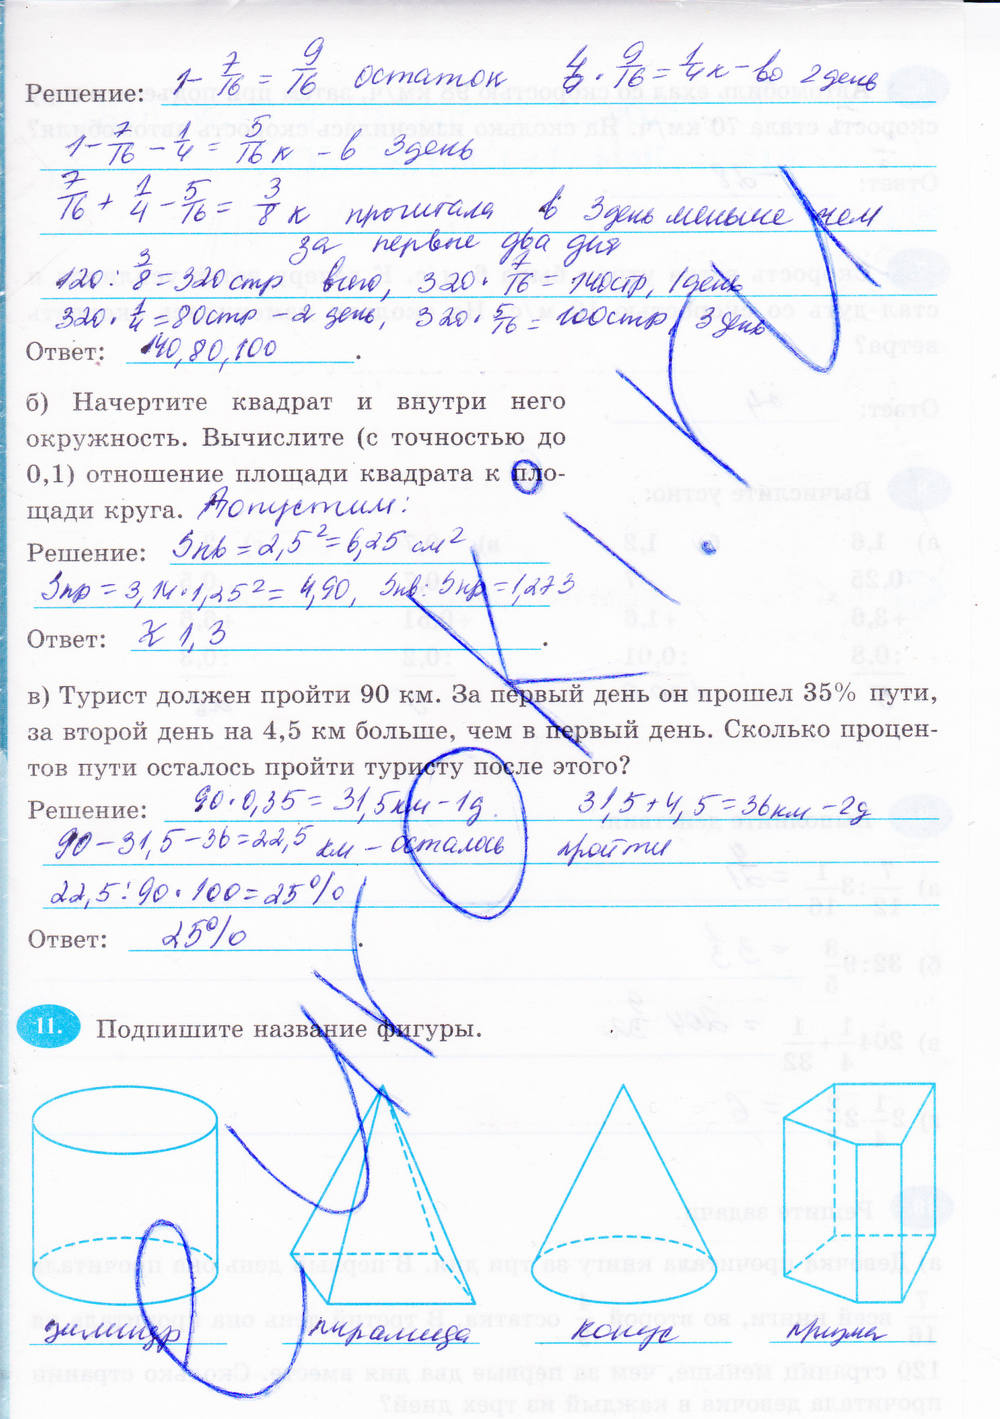 Решение: 1 - 7/16 = 9/16 остаток 4/9 · 9/16 = 1/4 к - во 2 день
1 - 7/16 - 1/4 = 5/16 к - в 3 день
7/16 + 1/4 - 5/16 = 3/8 к прочитала в 3 день меньше чем
за первые два дня
120 : 3/8 = 320 стр всего, 320 · 7/16 = 140 стр, 1 день
320 · 1/4 = 80 стр - 2 день, 320 · 5/16 = 100 стр, 3 день
Ответ: 140, 80, 100.
б) Начертите квадрат и внутри него
окружность. Вычислите (с точностью до
0,1) отношение площади квадрата к пло-
щади круга. Допустим:
Решение: Sкв = 2,5² = 6,25 см²
Sкр = 3,14 · 1,25² = 4,90, Sкв : Sкр = 1,273
Ответ: ≈ 1,3.
в) Турист должен пройти 90 км. За первый день он прошел 35% пути,
за второй день на 4,5 км больше, чем в первый день. Сколько процен-
тов пути осталось пройти туристу после этого?
Решение: 90 · 0,35 = 31,5 км - 1 д. 31,5 + 4,5 = 36 км - 2 д
90 - 31,5 - 36 = 22,5 км - осталось пройти
22,5 : 90 · 100 = 25%
Ответ: 25%.
11. Подпишите название фигуры.
цилиндр пирамида конус призма